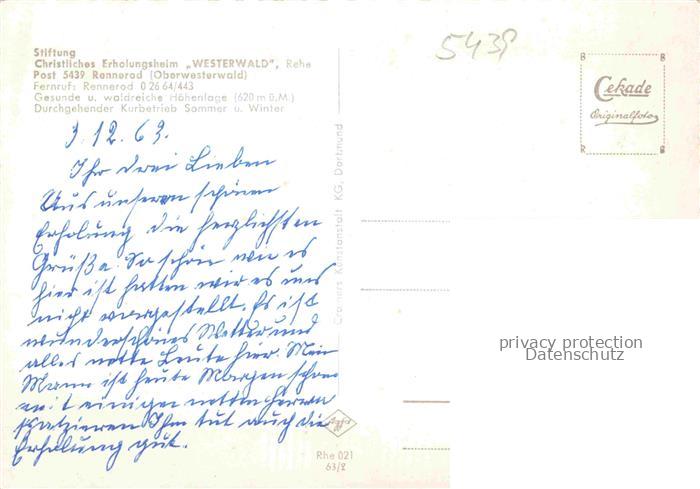 Stiftung
Christliches Erholungsheim „WESTERWALD", Rehe
Post 5439 Rennerod (Oberwesterwald)
Fernruf: Rennerod 0 26 64/443
Gesunde u. waldreiche Höhenlage (620 m ü.M.)
Durchgehender Kurbetrieb Sommer u. Winter
3.12.63.
Ihr drei Lieben
Aus unserer schönen
Erholung die herzlichsten
Grüße. So schön wie es
hier ist hatten wir es uns
nicht vorgestellt. Es ist
wunderschönes Wetter und
alles nette Leute hier. Mein
Mann ist heute Morgen schon
mit einigen netten Herren
spatzieren. Ihm tut auch die
Erholung gut.
Cramers Kunstanstalt KG, Dortmund
Agfa
Rhe 021
63/2
5439
Cekade
Originalfoto
privacy protection
Datenschutz